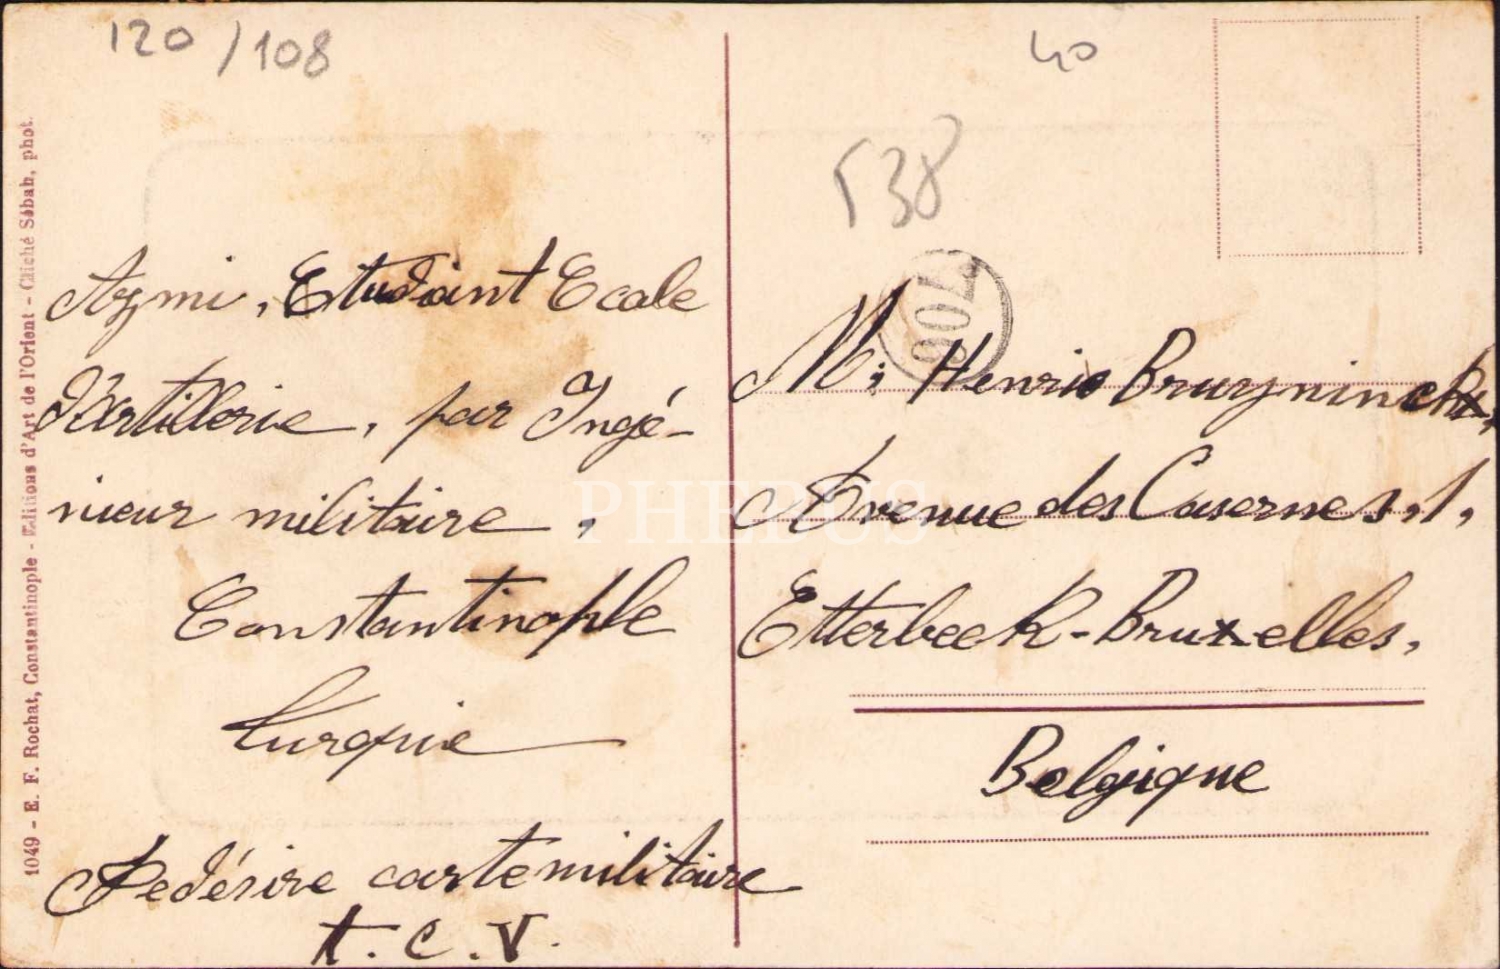 120/108
40
538
706
Azmi, Etudiant Ecole
d'Artillerie, par Ingé-
nieur militaire,
Constantinople
Turquie
Je désire carte militaire
t.C.V.
Mr Henrie Bruyninckx,
Avenue des Casernes, 1,
Etterbeek-Bruxelles,
Belgique
1049 - E. F. Rochat, Constantinople - Editions d'Art de l'Orient - Cliché Sébah, phot.
PHEBUS